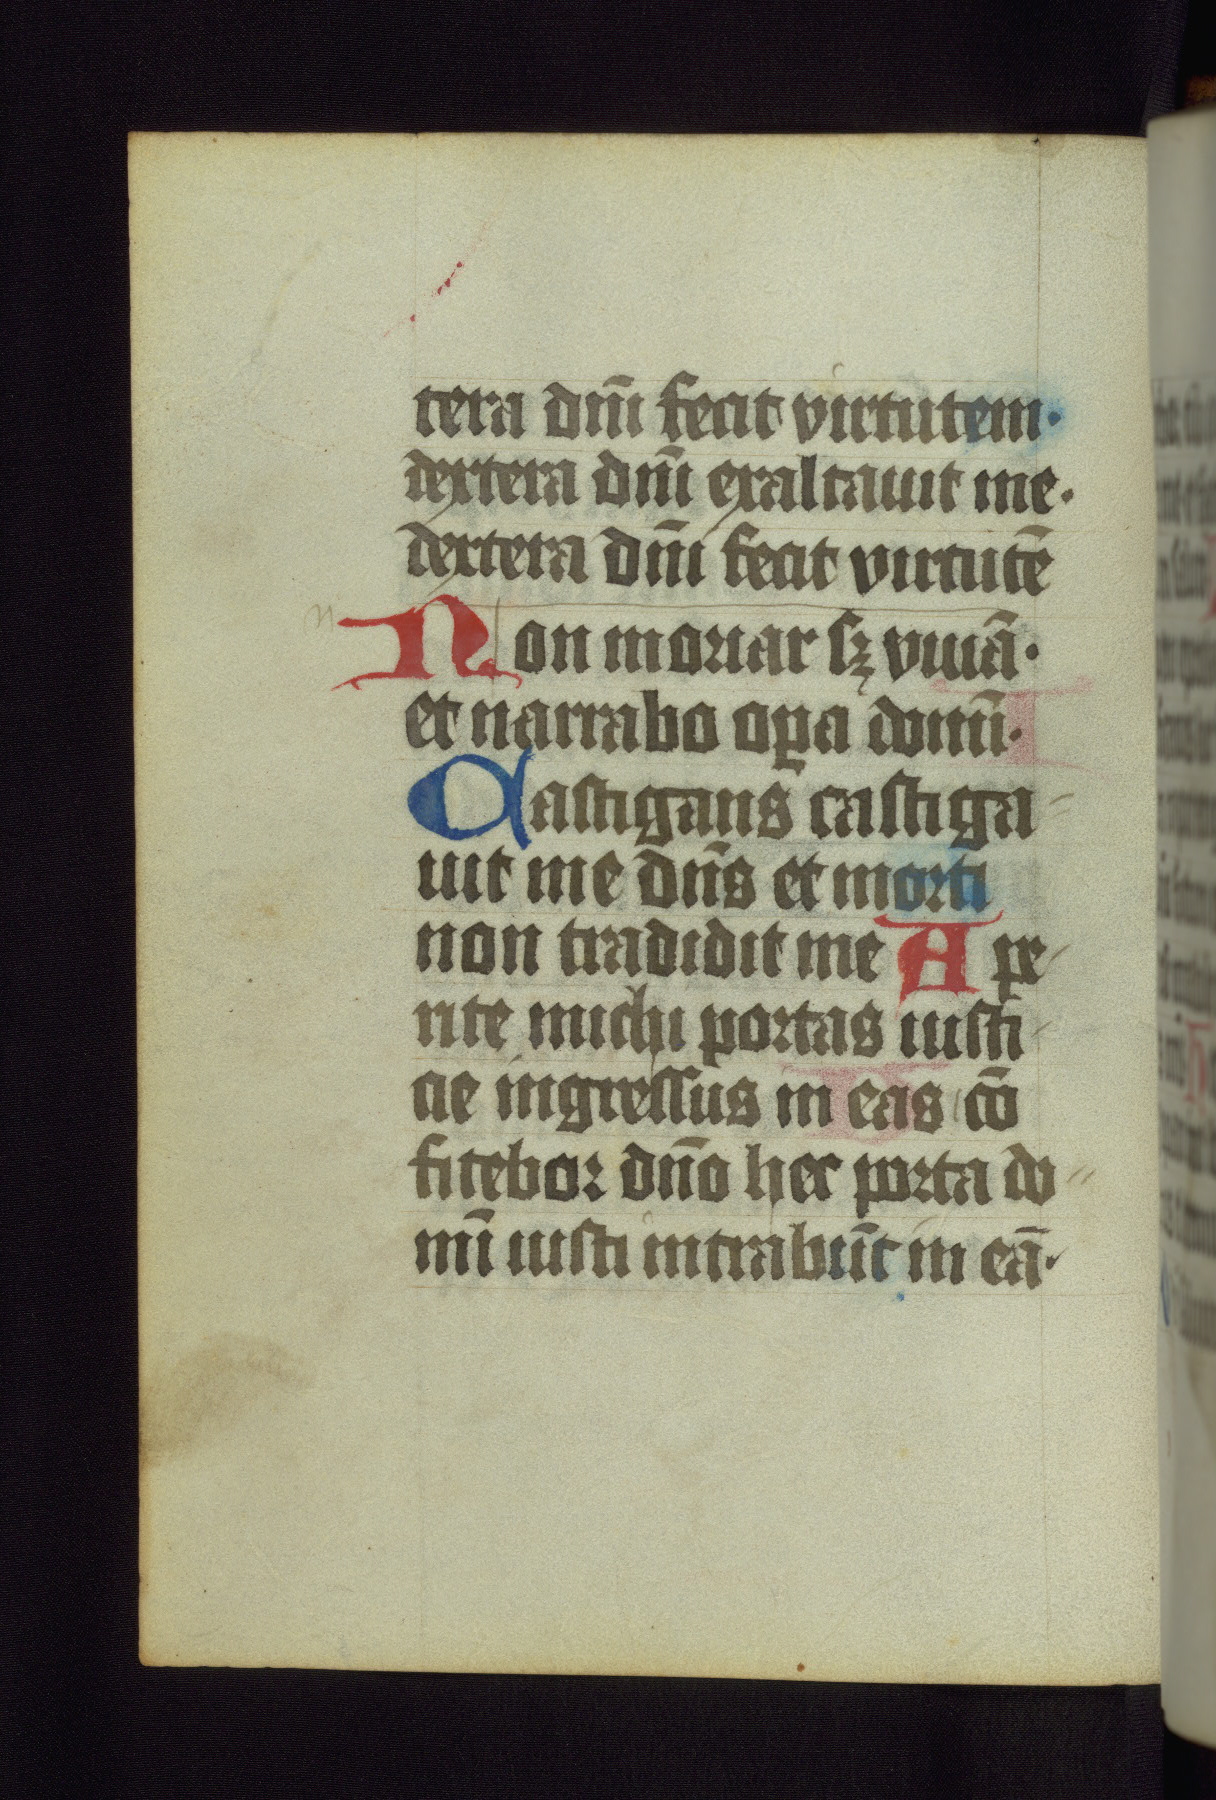 tera dn̄i fecit virtutem·
dextera dn̄i exaltauit me·
dextera dn̄i fecit virtutē
Non moriar sꝫ viuā·
et narrabo oꝑa domīi·
Castigans castiga-
uit me dn̄s et morti
non tradidit me Ape-
rite michi portas iusti-
cie ingressus in eas cō
fitebor dn̄o hec porta do-
mī iusti intrabūt in eā·